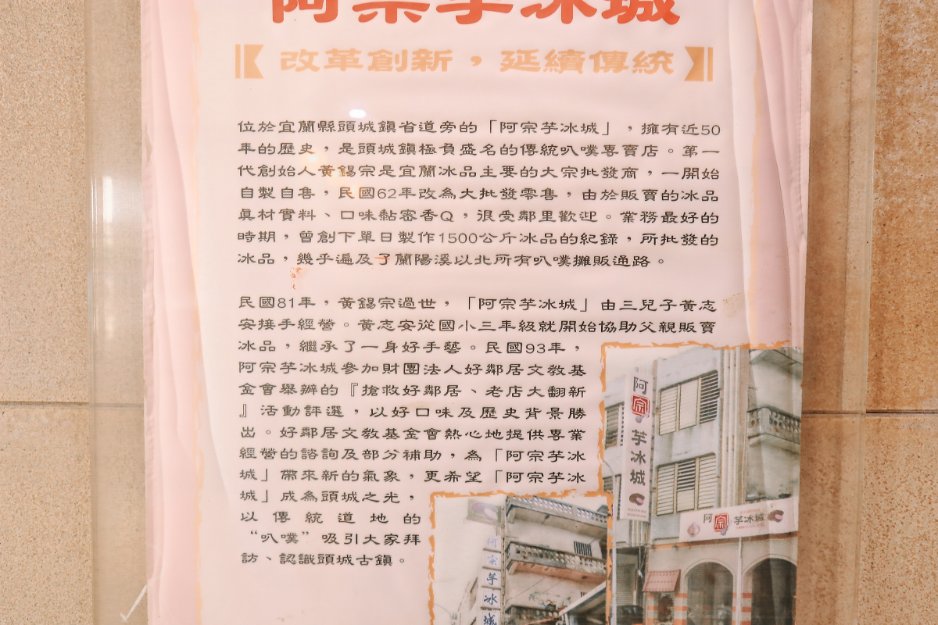 阿宗芋冰城
改革創新，延續傳統
位於宜蘭縣頭城鎮省道旁的「阿宗芋冰城」，擁有近50
年的歷史，是頭城鎮極負盛名的傳統叭噗專賣店。第一
代創始人黃錫宗是宜蘭冰品主要的大宗批發商，一開始
自製自售，民國62年改為大批發零售，由於販賣的冰品
真材實料、口味黏密香Q，很受鄰里歡迎。業務最好的
時期，曾創下單日製作1500公斤冰品的紀錄，所批發的
冰品，幾乎遍及了蘭陽溪以北所有叭噗攤販通路。
民國81年，黃錫宗過世，「阿宗芋冰城」由三兒子黃志
安接手經營。黃志安從國小三年級就開始協助父親販賣
冰品，繼承了一身好手藝。民國93年，
阿宗芋冰城參加財團法人好鄰居文教基
金會舉辦的『搶救好鄰居、老店大翻新
』活動評選，以好口味及歷史背景勝
出。好鄰居文教基金會熱心地提供專業
經營的諮詢及部分補助，為「阿宗芋冰
城」帶來新的氣象，更希望「阿宗芋冰
城」成為頭城之光，
以傳統道地的
“叭噗”吸引大家拜
訪、認識頭城古鎮。
阿宗芋冰城
阿宗芋冰城
阿宗芋冰城